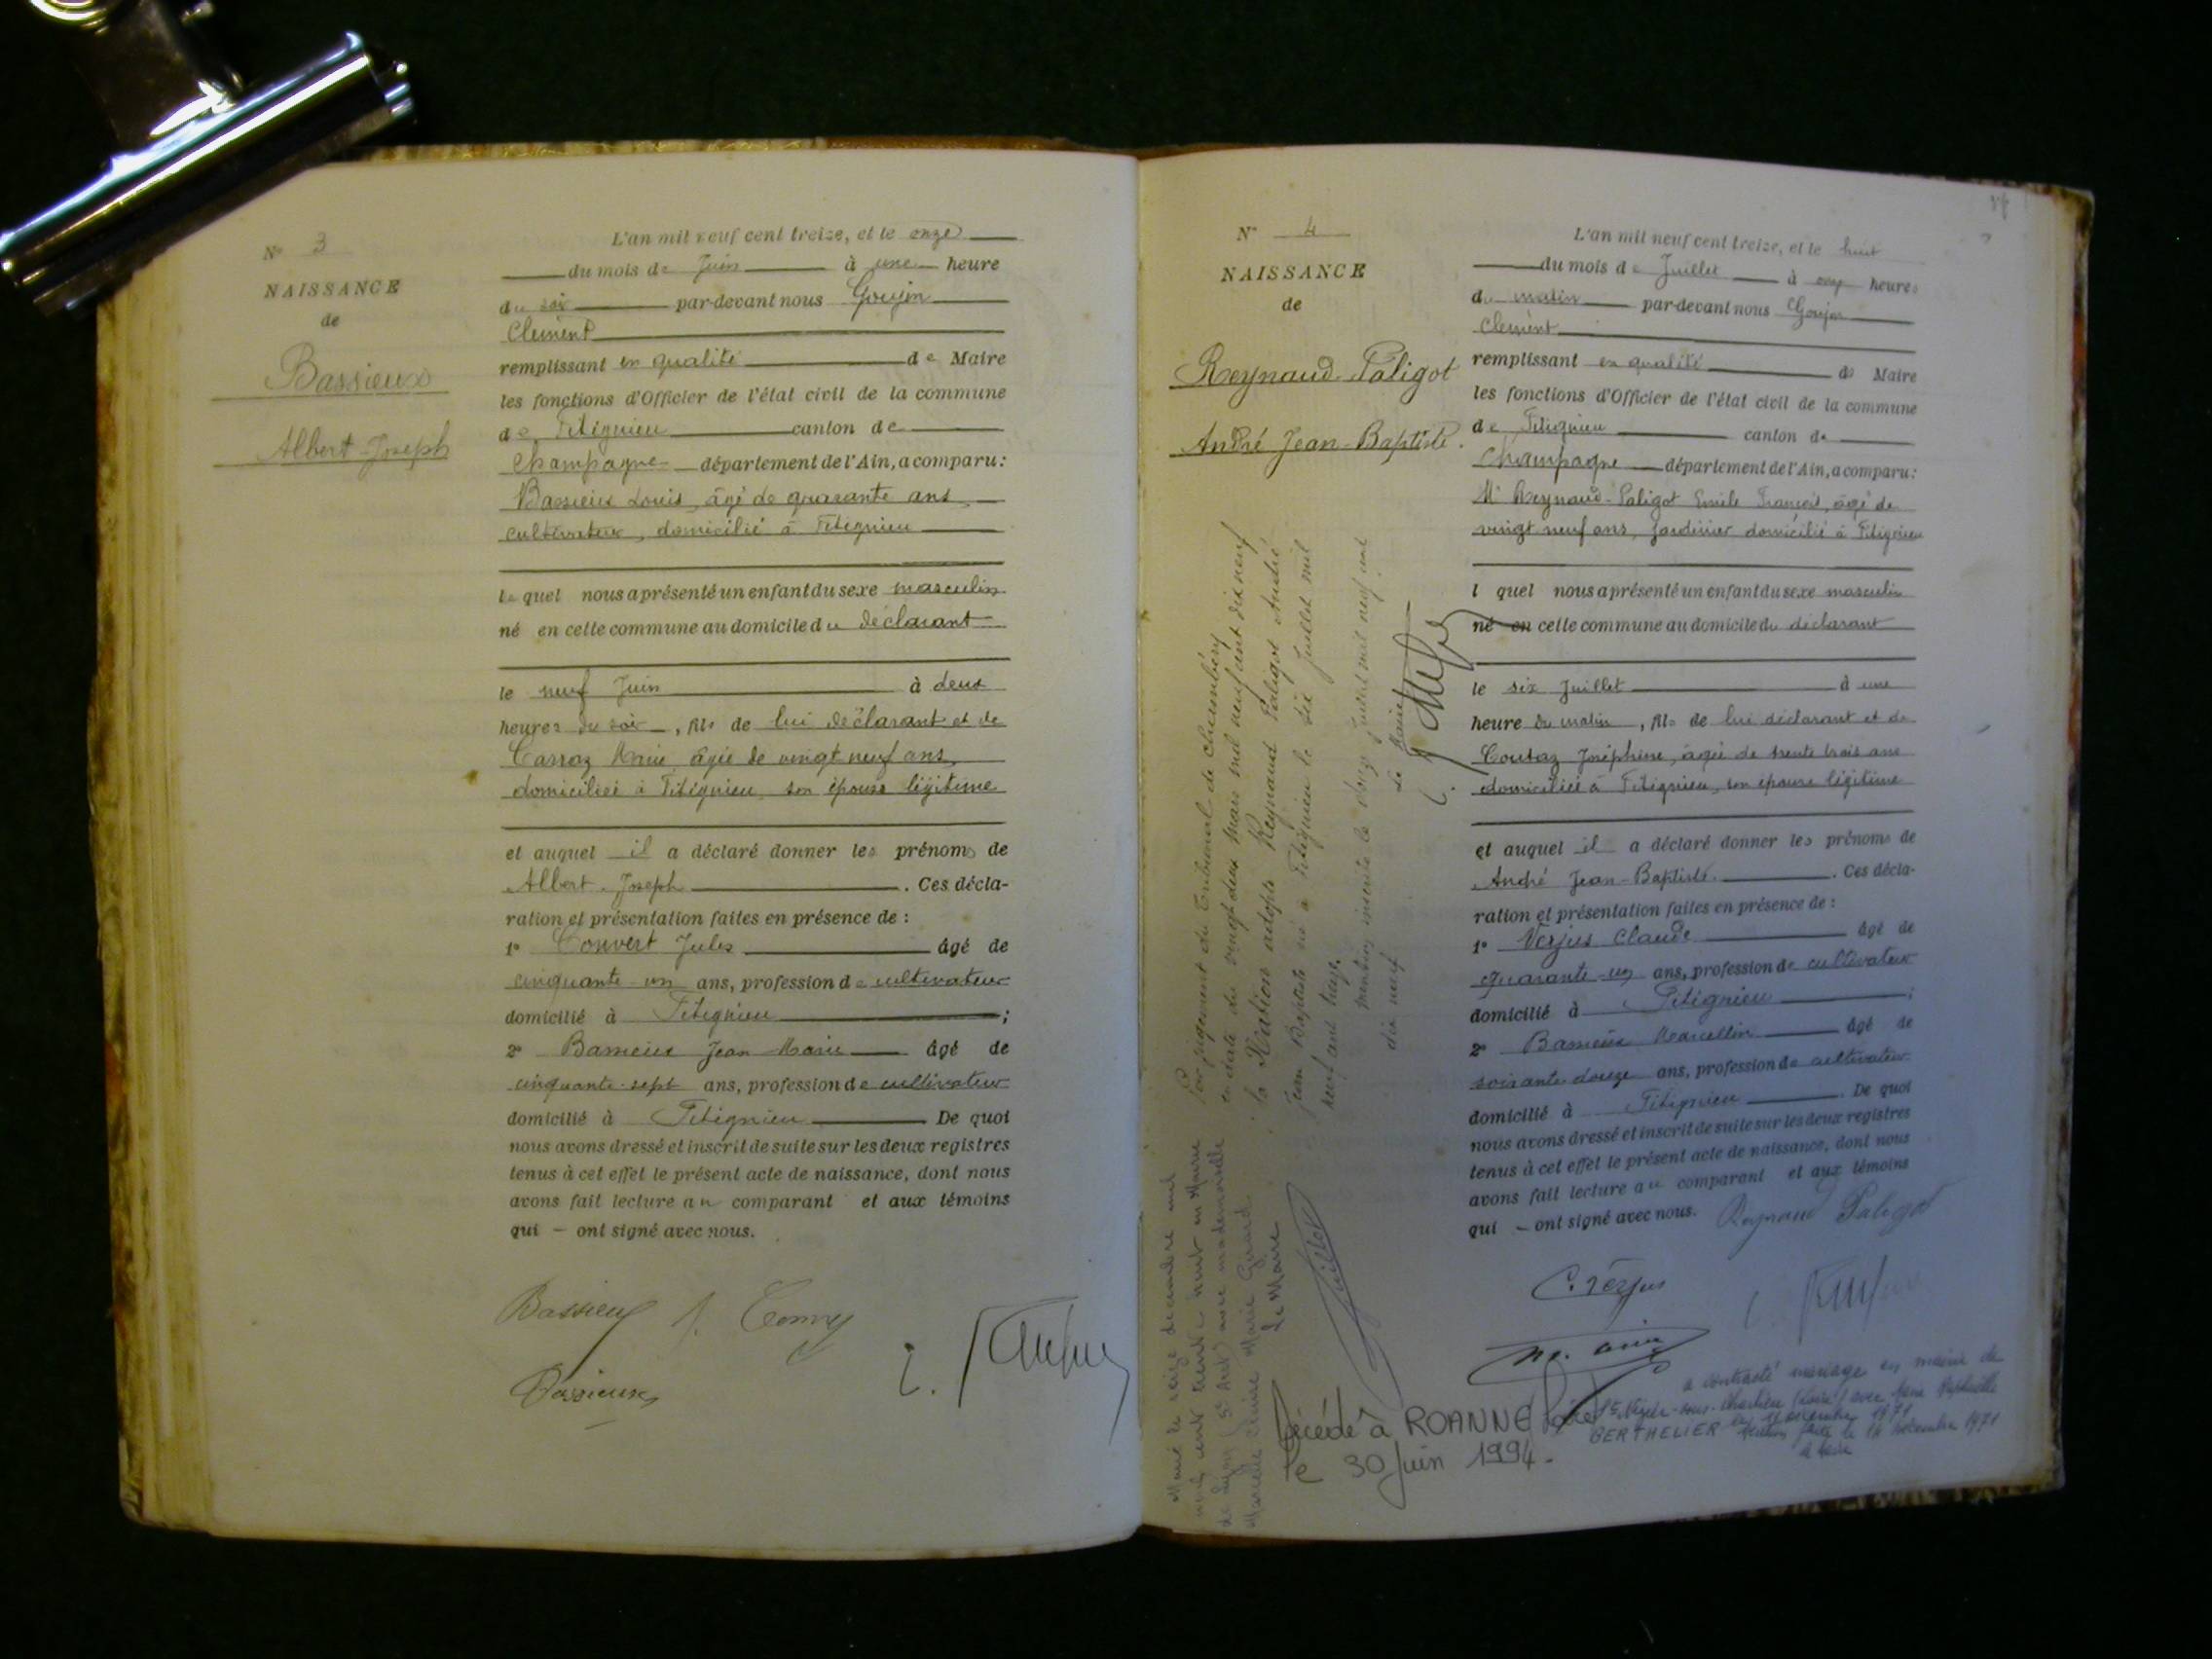 N° 3
NAISSANCE
de
Bassieux
Albert-Joseph
L'an mil neuf cent treize, et le onze
du mois de Juin à une heure
du soir par-devant nous Goujon
Clément
remplissant en qualité de Maire
les fonctions d'Officier de l'état civil de la commune
de Fitignieu canton de
Champagne département de l'Ain, a comparu:
Bassieux Louis, âgé de quarante ans
cultivateur, domicilié à Fitignieu
lequel nous a présenté un enfant du sexe masculin
né en cette commune au domicile du déclarant
le neuf Juin à deux
heures du soir, fils de lui déclarant et de
Carraz Marie, âgée de vingt neuf ans,
domiciliée à Fitignieu, son épouse légitime
et auquel il a déclaré donner les prénoms de
Albert-Joseph. Ces décla-
ration et présentation faites en présence de :
1° Convert Jules âgé de
cinquante un ans, profession de cultivateur
domicilié à Fitignieu ;
2° Bassieux Jean-Marie âgé de
cinquante-sept ans, profession de cultivateur
domicilié à Fitignieu De quoi
nous avons dressé et inscrit de suite sur les deux registres
tenus à cet effet le présent acte de naissance, dont nous
avons fait lecture au comparant et aux témoins
qui - ont signé avec nous.
Bassieux J. Conver
Bassieux
N° 4
NAISSANCE
de
Reynaud-Paligot
André Jean-Baptiste.
L'an mil neuf cent treize, et le huit
du mois de Juillet à onze heures
du matin par-devant nous Goujon
Clément
remplissant en qualité de Maire
les fonctions d'Officier de l'état civil de la commune
de Fitignieu canton de
Champagne département de l'Ain, a comparu:
Mr Reynaud-Paligot Emile François, âgé de
vingt neuf ans, Jardinier domicilié à Fitignieu
lquel nous a présenté un enfant du sexe masculin
né en cette commune au domicile du déclarant
le six Juillet à une
heure du matin, fils de lui déclarant et de
Coutaz Joséphine, âgée de trente trois ans
domiciliée à Fitignieu, son épouse légitime
et auquel il a déclaré donner les prénoms de
André Jean-Baptiste. Ces décla-
ration et présentation faites en présence de :
1° Verjus Claude âgé de
quarante-un ans, profession de cultivateur
domicilié à Fitignieu ;
2° Bassieux Marcellin âgé de
soixante douze ans, profession de cultivateur
domicilié à Fitignieu. De quoi
nous avons dressé et inscrit de suite sur les deux registres
tenus à cet effet le présent acte de naissance, dont nous
avons fait lecture au comparant et aux témoins
qui - ont signé avec nous. Reynaud Paligot
C. Verjus
Par jugement du Tribunal de Chambéry
en date du vingt deux Mars mil neuf cent dix neuf
la Nation adopte Reynaud Paligot André
Jean Baptiste né à Fitignieu le six Juillet mil
neuf cent treize.
Mention inscrite le onze juillet mil neuf cent
dix neuf
Le Maire
Marié le seize décembre mil
neuf cent trente huit en Mairie
de Lyon (5e Arrt) avec mademoiselle
Marcelle Marie Girard
Le Maire
Décédé à ROANNE (Loire)
le 30 Juin 1994.
a contracté mariage en mairie de
St Nizier-sous-Charlieu (Loire) avec
BERTHELIER le 11 décembre 1971
Mention faite le 14 décembre 1971
le Maire